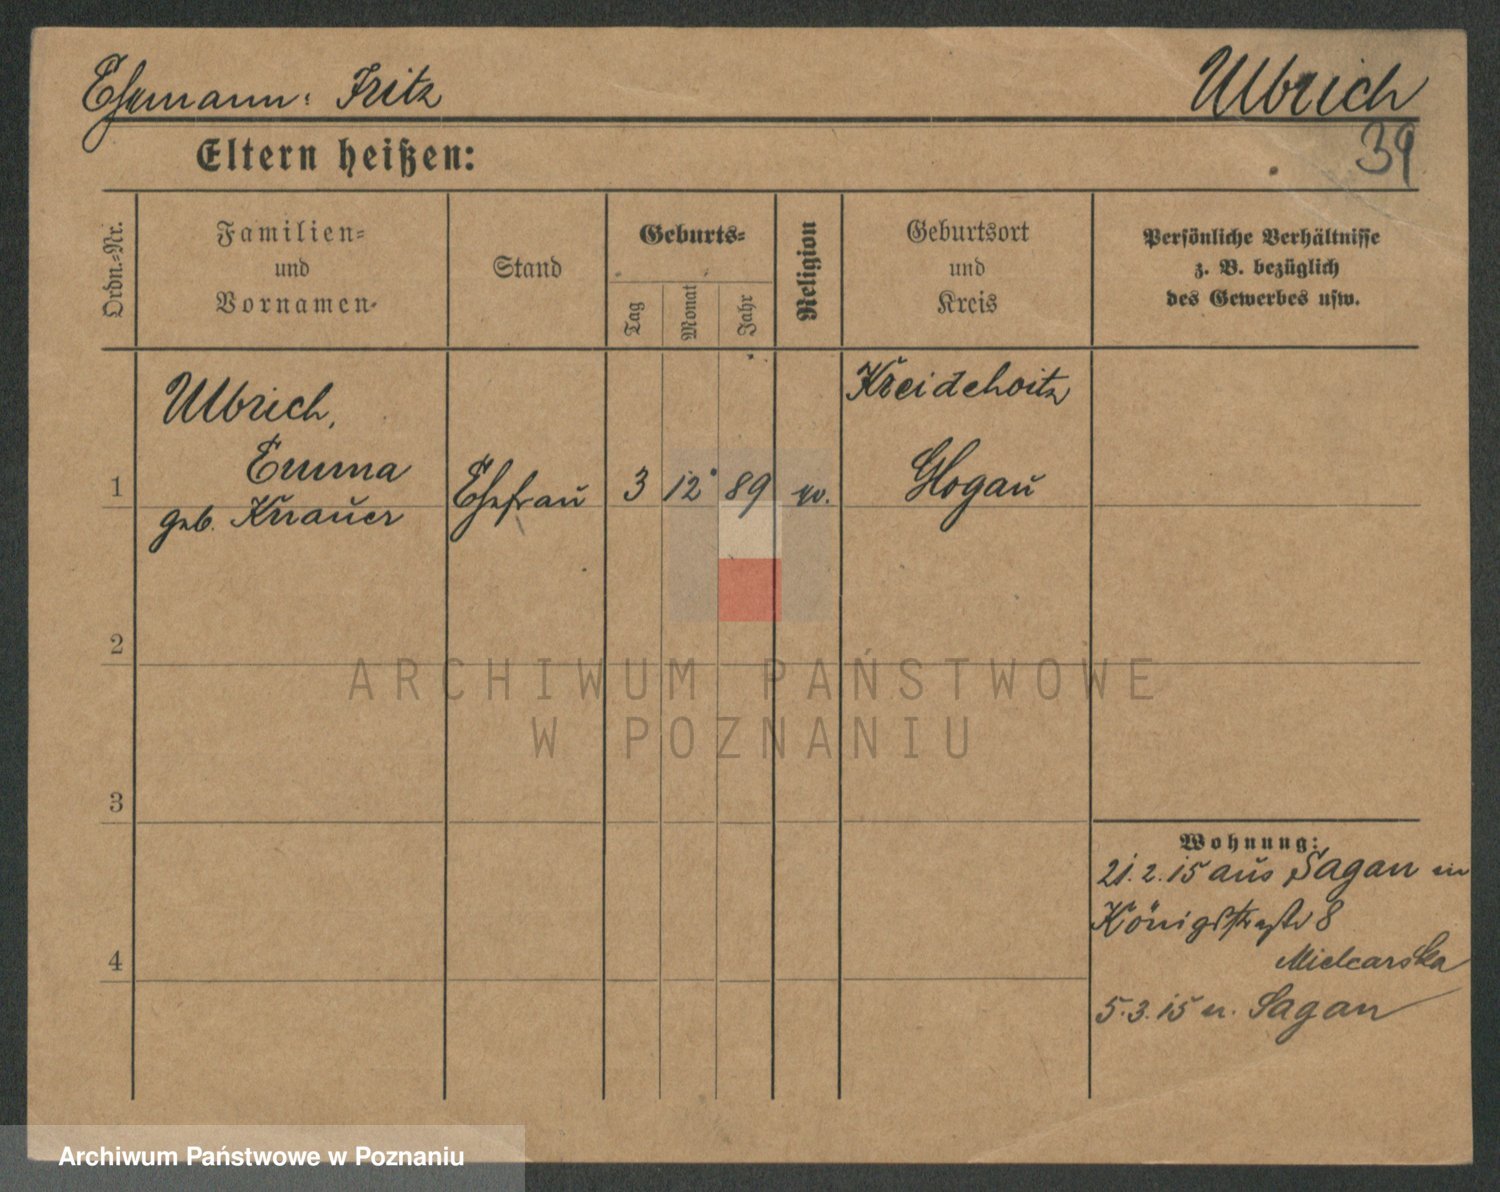 Ehemann: Fritz
Ulbrich
39
Eltern heißen:
Ordn.-Nr.
Familien-
und
Vornamen
Stand
Geburts-
Tag
Monat
Jahr
Religion
Geburtsort
und
Kreis
Persönliche Verhältnisse
z. B. bezüglich
des Gewerbes usw.
1
Ulbrich,
Emma
geb. Knauer
Ehefrau
3
12
89
Glogau
2
3
4
Wohnung:
21.2.15 aus Sagan
Königstraße 8
Mielcarska
5.3.15 n. Sagan
ARCHIWUM PAŃSTWOWE
W POZNANIU
Archiwum Państwowe w Poznaniu